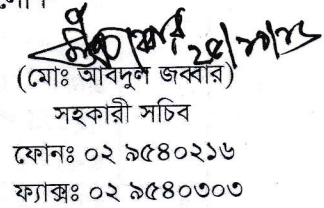 ২৫/১০/১৮
(মোঃ আবদুল জব্বার)
সহকারী সচিব
ফোনঃ ০২ ৯৫৪০২১৬
ফ্যাক্সঃ ০২ ৯৫৪০৩০৩